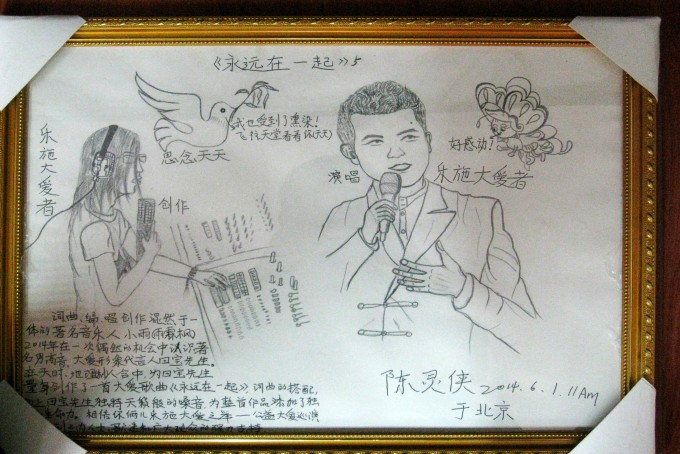 《永远在一起》5
乐施大爱者
思念天天
我也受到了熏染!
飞往天堂看看你(天天)
好感动!
演唱
乐施大爱者
创作
词曲、编、唱创作混然于一
体的著名音乐人 小雨(雨霖枫)
2014年在一次偶然的机会中认识著
名男高音、大爱形象代言人田宝先生。
天时、地利、人合中,为田宝先生
量身创作了一首大爱歌曲《永远在一起》词曲的搭配,
田宝先生独特天籁般的嗓音,为整首作品添加了独
命力。相信你俩儿乐施大爱之年——公益大爱巡演
陈灵侠 2014.6.1.11Am
于北京